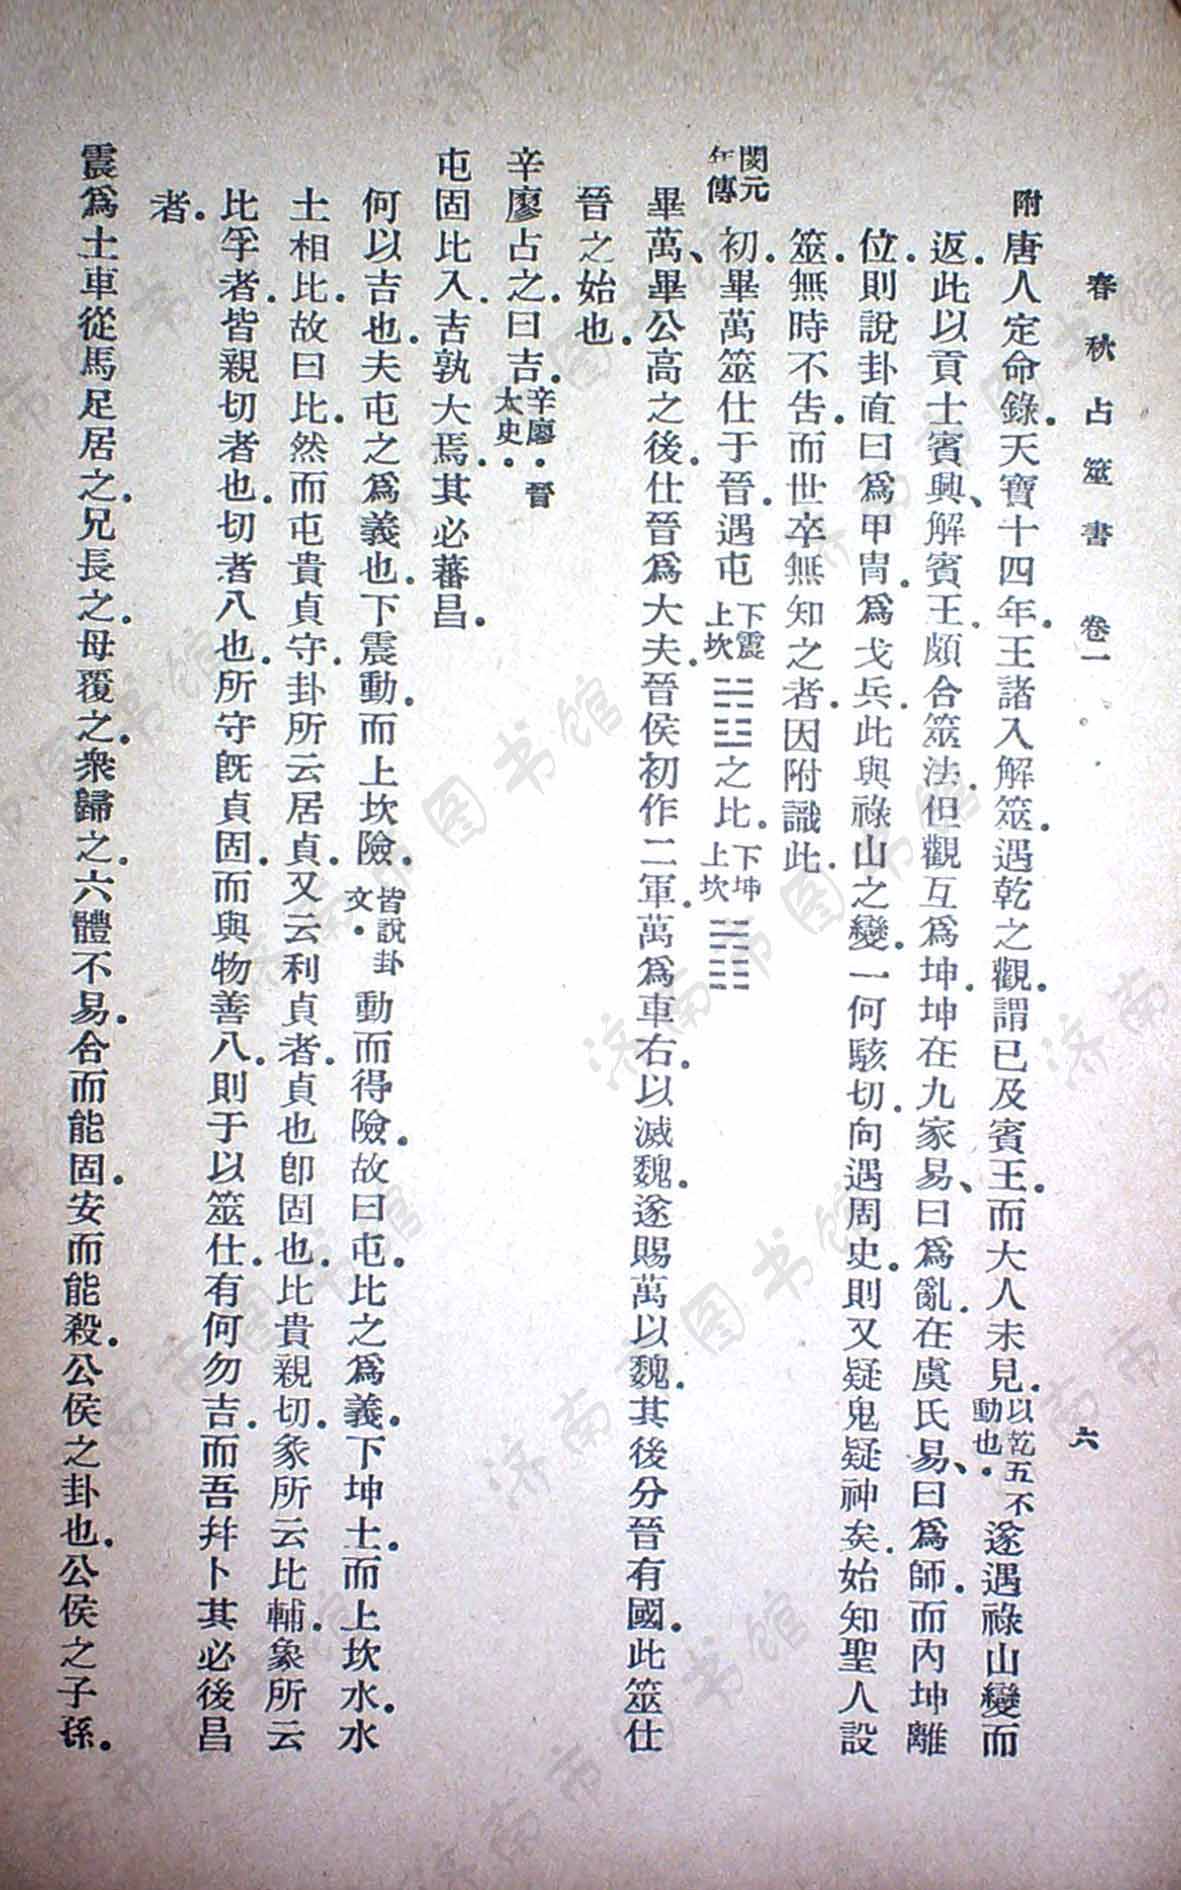 春秋占筮書 卷一 六
附唐人定命錄.天寶十四年.王諸入解筮.遇乾之觀.謂已及賓王.而大人未見.以乾五不動也.遂遇祿山變而
返.此以貢士賓興、解賓王.頗合筮法.但觀互爲坤.坤在九家易、曰爲亂.在虞氏易、曰爲師.而內坤離
位.則說卦直曰爲甲冑.爲戈兵.此與祿山之變.一何駭切.向遇周史.則又疑鬼疑神矣.始知聖人設
筮.無時不告.而世卒無知之者.因附識此.
閔元年傳 初.畢萬筮仕于晉.遇屯下震上坎䷂之比.下坤上坎䷇
畢萬、畢公高之後.仕晉爲大夫.晉侯初作二軍.萬爲車右.以滅魏.遂賜萬以魏.其後分晉有國.此筮仕
晉之始也.
辛廖占之.曰吉.辛廖.晉太史.
屯固比入.吉孰大焉.其必蕃昌.
何以吉也.夫屯之爲義也.下震動.而上坎險.皆說卦文.動而得險.故曰屯.比之爲義.下坤土.而上坎水.水
土相比.故曰比.然而屯貴貞守.卦所云居貞.又云利貞者.貞也卽固也.比貴親切.彖所云比輔.象所云
比孚者.皆親切者也.切者入也.所守旣貞固.而與物善入.則于以筮仕.有何勿吉.而吾幷卜其必後昌
者.
震爲土車從馬足居之.兄長之.母覆之.衆歸之.六體不易.合而能固.安而能殺.公侯之卦也.公侯之子孫.